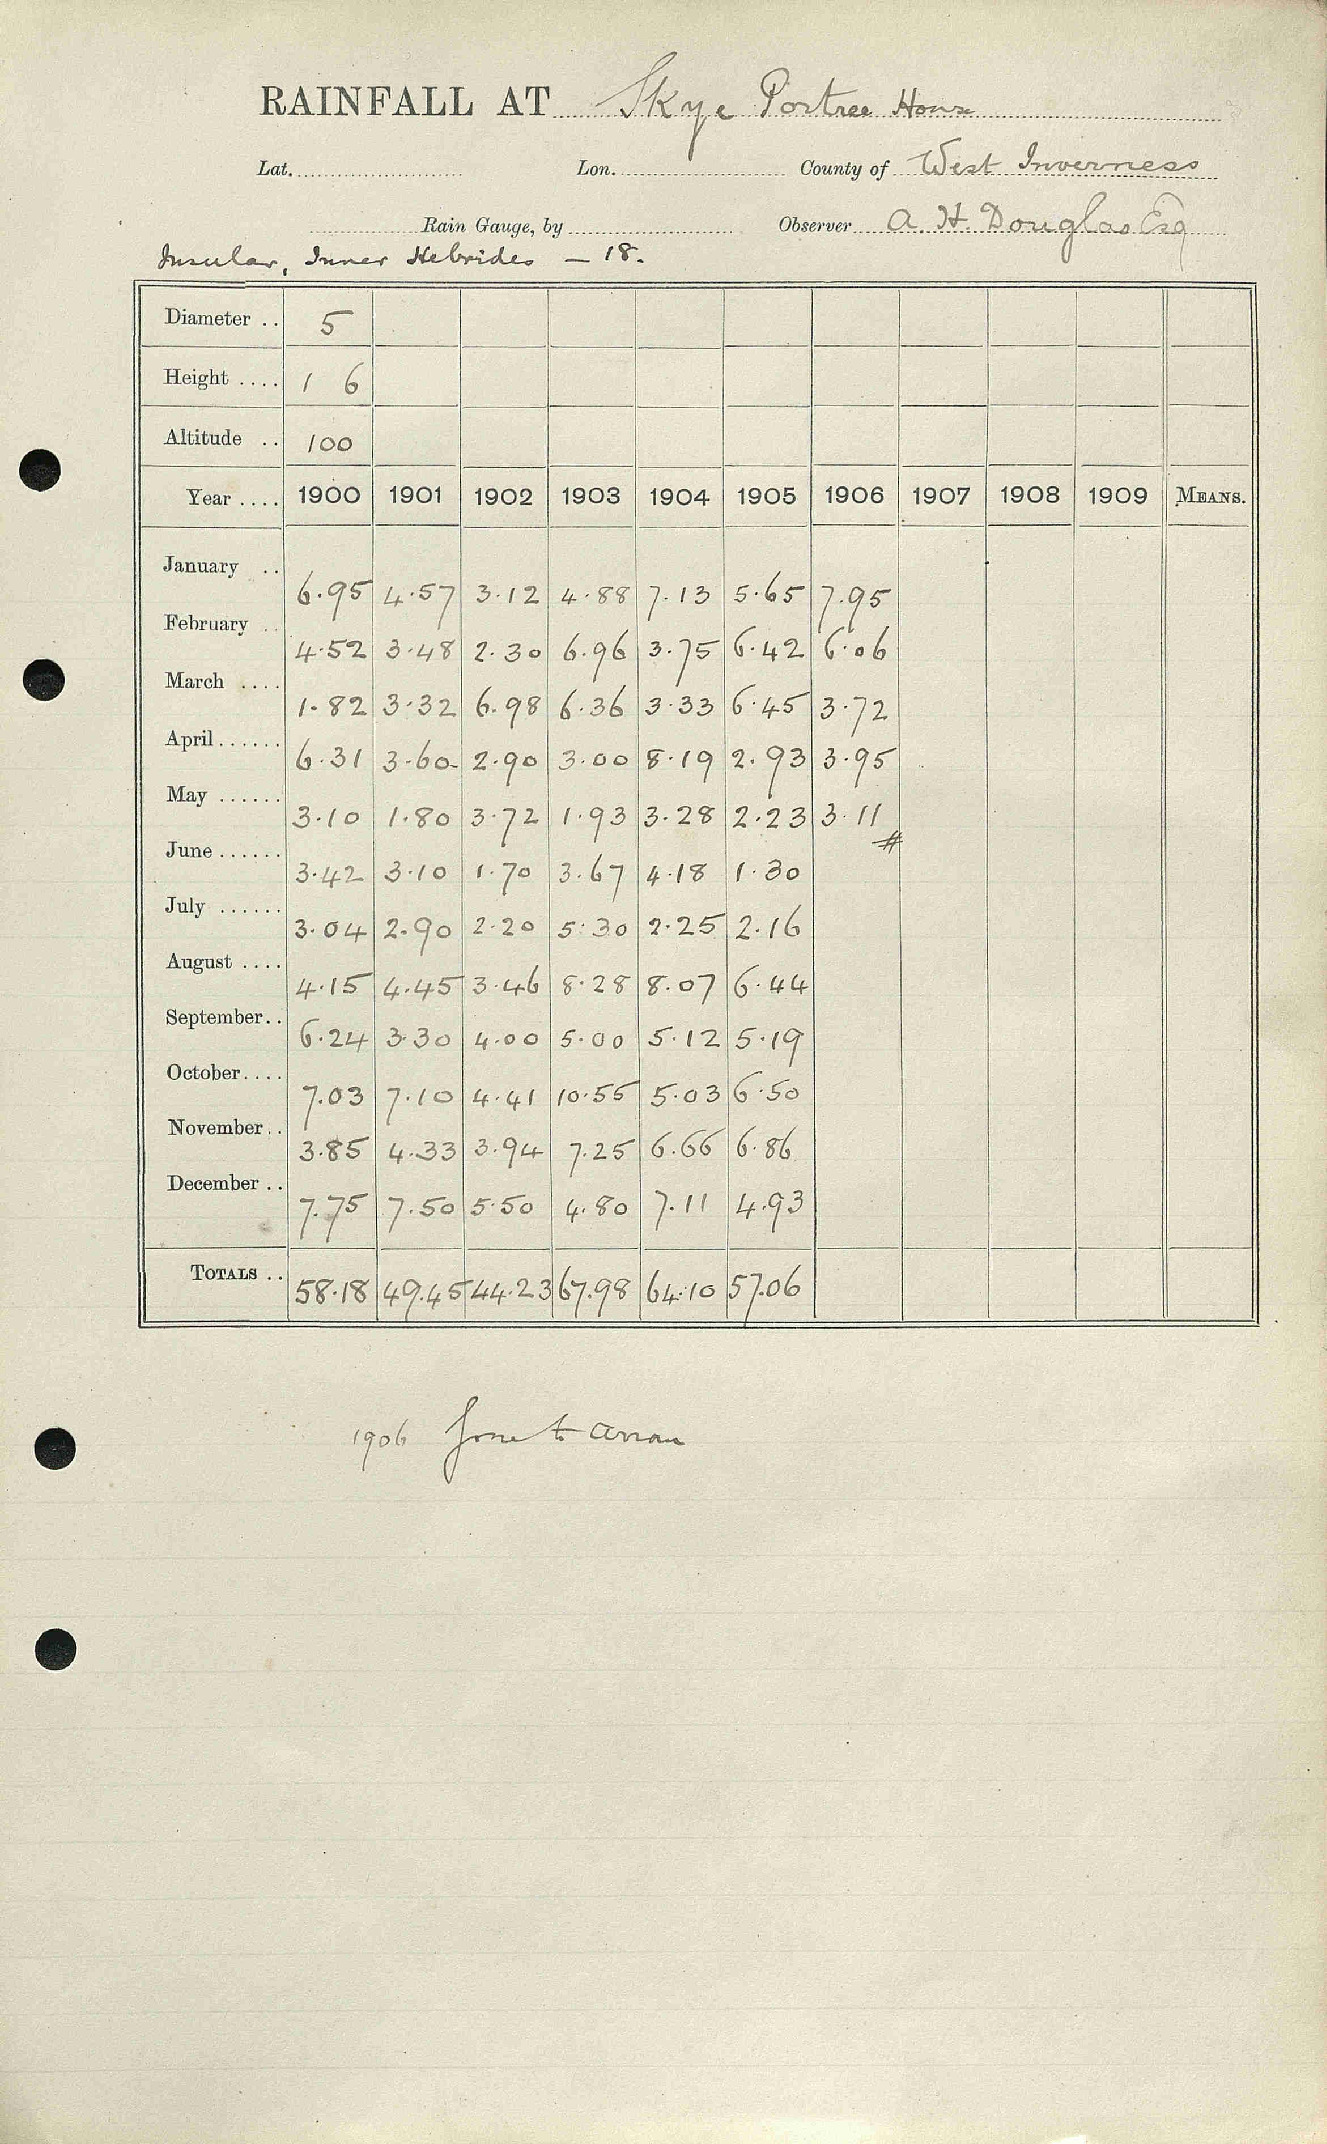 RAINFALL AT Skye Portree House
Lat. Lon. County of West Inverness
Rain Gauge, by Observer A. H. Douglas Esq
Insular, Inner Hebrides – 18.
Diameter .. 5
Height .... 1 6
Altitude .. 100
Year .... 1900 1901 1902 1903 1904 1905 1906 1907 1908 1909 MEANS.
January .. 6.95 4.57 3.12 4.88 7.13 5.65 7.95
February .. 4.52 3.48 2.30 6.96 3.75 6.42 6.06
March .... 1.82 3.32 6.98 6.36 3.33 6.45 3.72
April...... 6.31 3.60 2.90 3.00 8.19 2.93 3.95
May ...... 3.10 1.80 3.72 1.93 3.28 2.23 3.11 #
June...... 3.42 3.10 1.70 3.67 4.18 1.30
July ...... 3.04 2.90 2.20 5.30 2.25 2.16
August .... 4.15 4.45 3.46 8.28 8.07 6.44
September.. 6.24 3.30 4.00 5.00 5.12 5.19
October.... 7.03 7.10 4.41 10.55 5.03 6.50
November.. 3.85 4.33 3.94 7.25 6.66 6.86
December .. 7.75 7.50 5.50 4.80 7.11 4.93
TOTALS .. 58.18 49.45 44.23 67.98 64.10 57.06
1906 gone to Arran